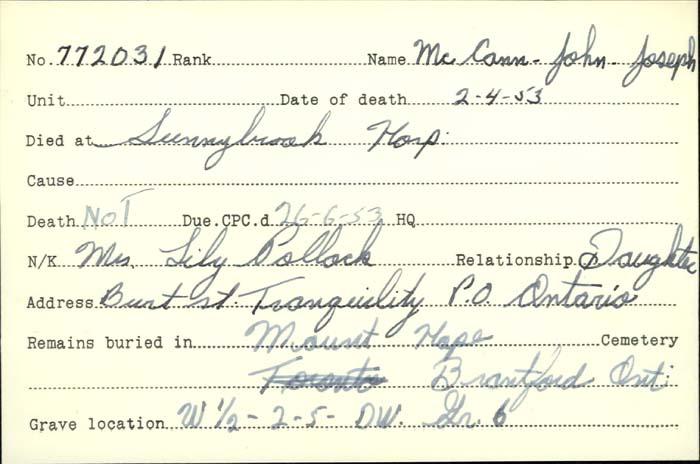 No. 772031 Rank Name Mc Cann - John - Joseph
Unit Date of death 2-4-53
Died at Sunnybrook Hosp.
Cause
Death NOT Due. CPC.d 26-6-53 HQ
N/K Mrs. Lily Pollock Relationship Daughter
Address Burt st Tranquility P.O Ontario
Remains buried in Mount Hope Cemetery
Toronto Brantford Ont.
Grave location W 1/2 - 2-5 - DW. Gr. 6